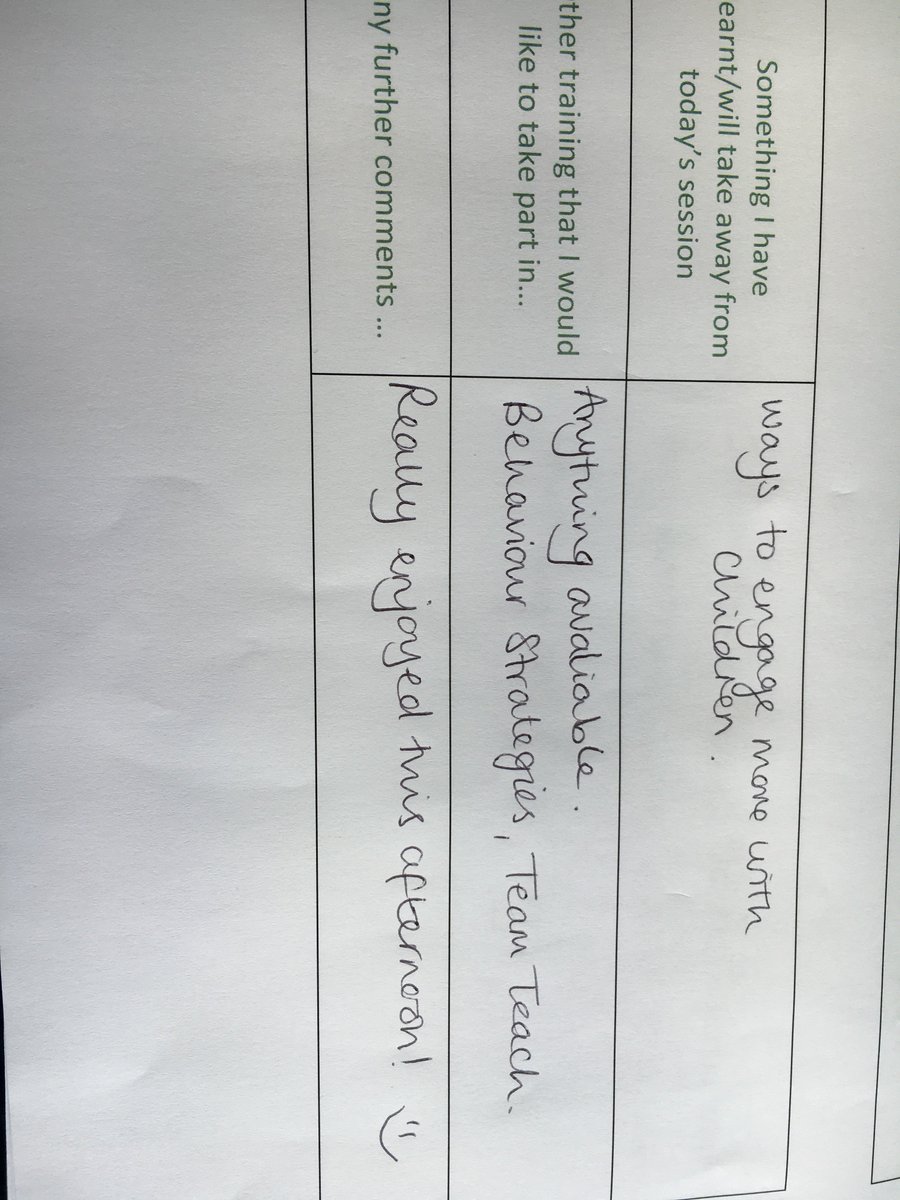 Something I have
earnt/will take away from
today's session
ways to engage more with
children.
ther training that I would
like to take part in...
Anything avaliable.
Behaviour Strategies, Team Teach.
ny further comments ...
Really enjoyed this afternoon!